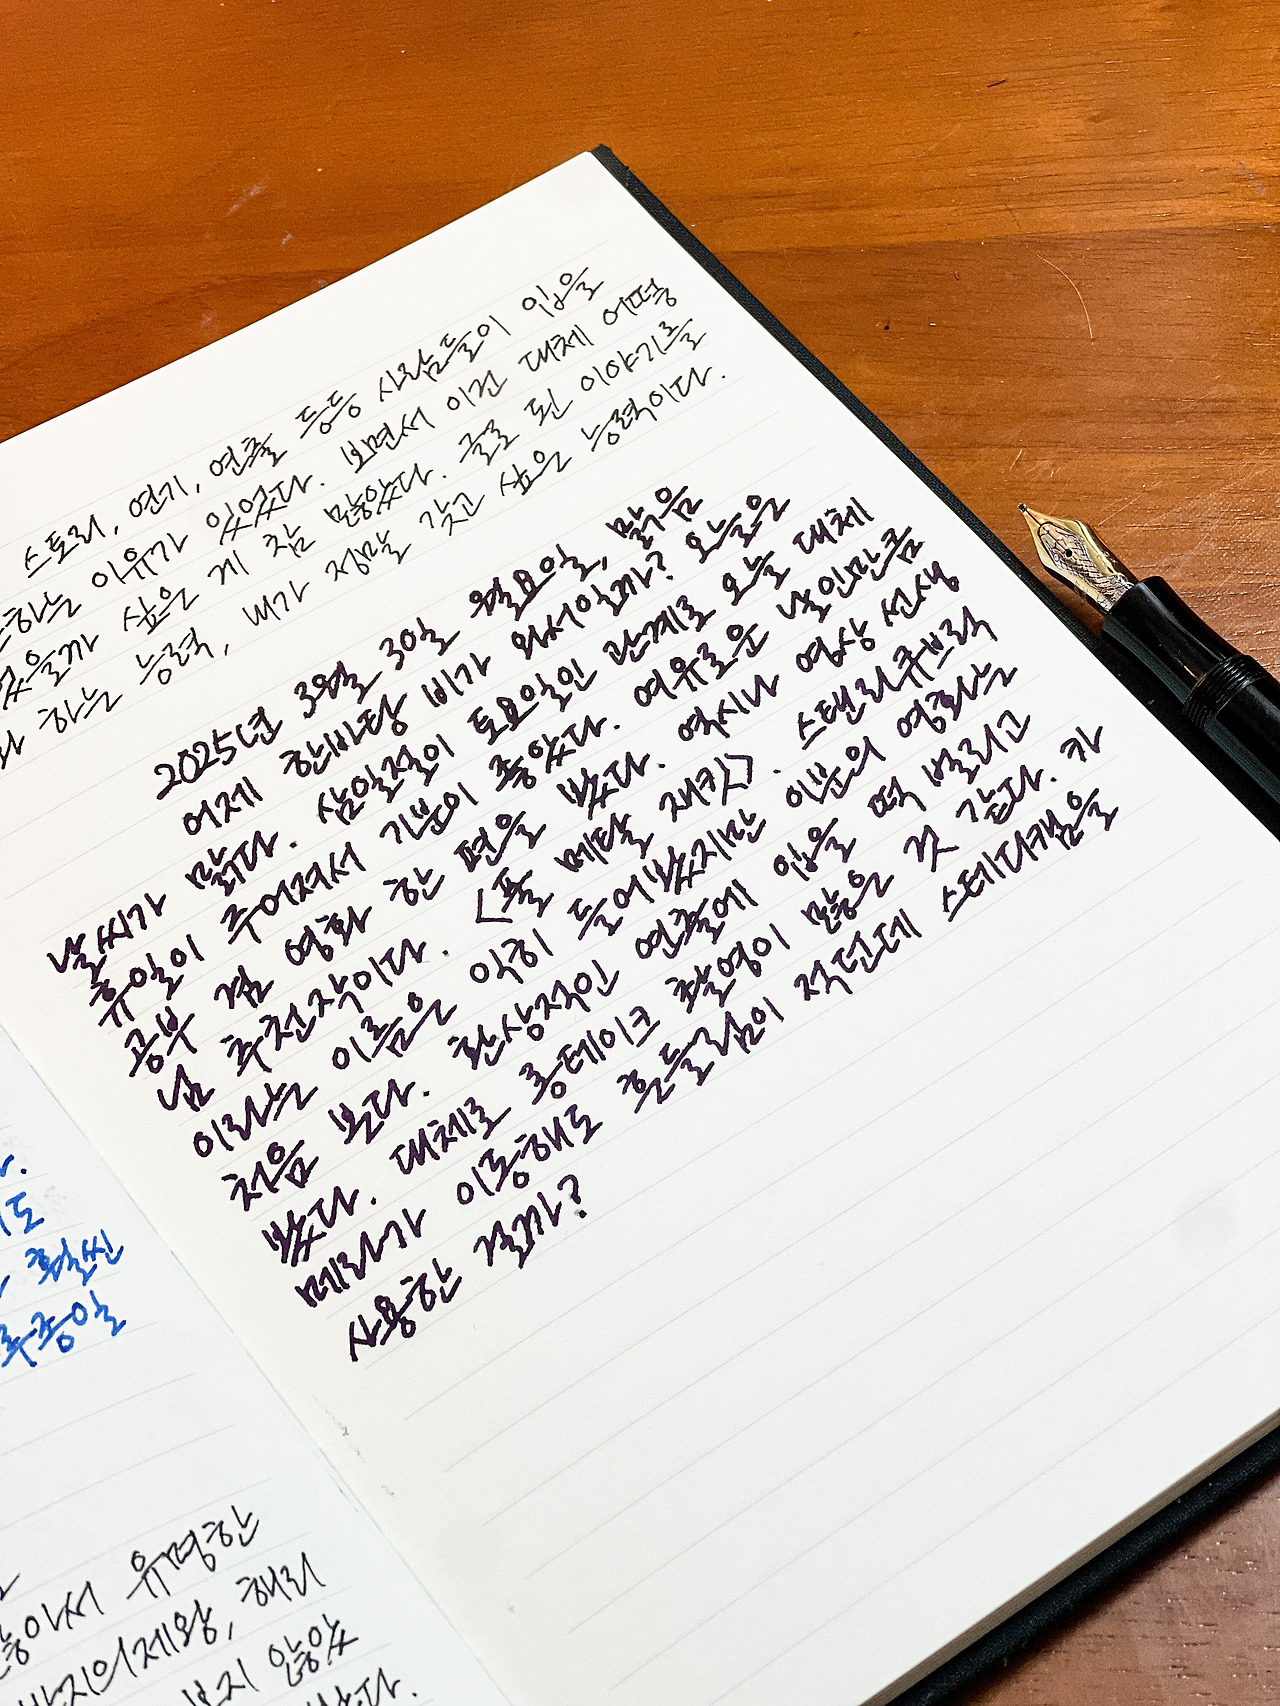 스토리, 연기, 연출 등등 사람들이 입을
하는 이유가 있었다. 보면서 이건 대체 어떻
었을까 싶은 게 참 많았다. 글로 된 이야기를
하는 능력, 내가 정말 갖고 싶은 능력이다.
2025년 3월 30일 월요일, 맑음
어제 한바탕 비가 와서일까? 오늘은
날씨가 맑다. 삼일절이 토요일인 관계로 오늘 대체
휴일이 주어져서 기분이 좋았다. 여유로운 날인만큼
공부 겸 영화 한 편을 봤다. 역시나 영상 선생
님 추천작이다. <풀 메탈 재킷>. 스탠리 큐브릭
이라는 이름은 익히 들어봤지만 이분의 영화는
처음 본다. 환상적인 연출에 입을 떡 벌리고
봤다. 대체로 롱테이크 촬영이 많은 것 같다. 카
메라가 이동해도 흔들림이 적던데 스테디캠을
사용한 걸까?
도
훨씬
하루종일
많아서 유명한
반지의제왕, 해리
보지 않았